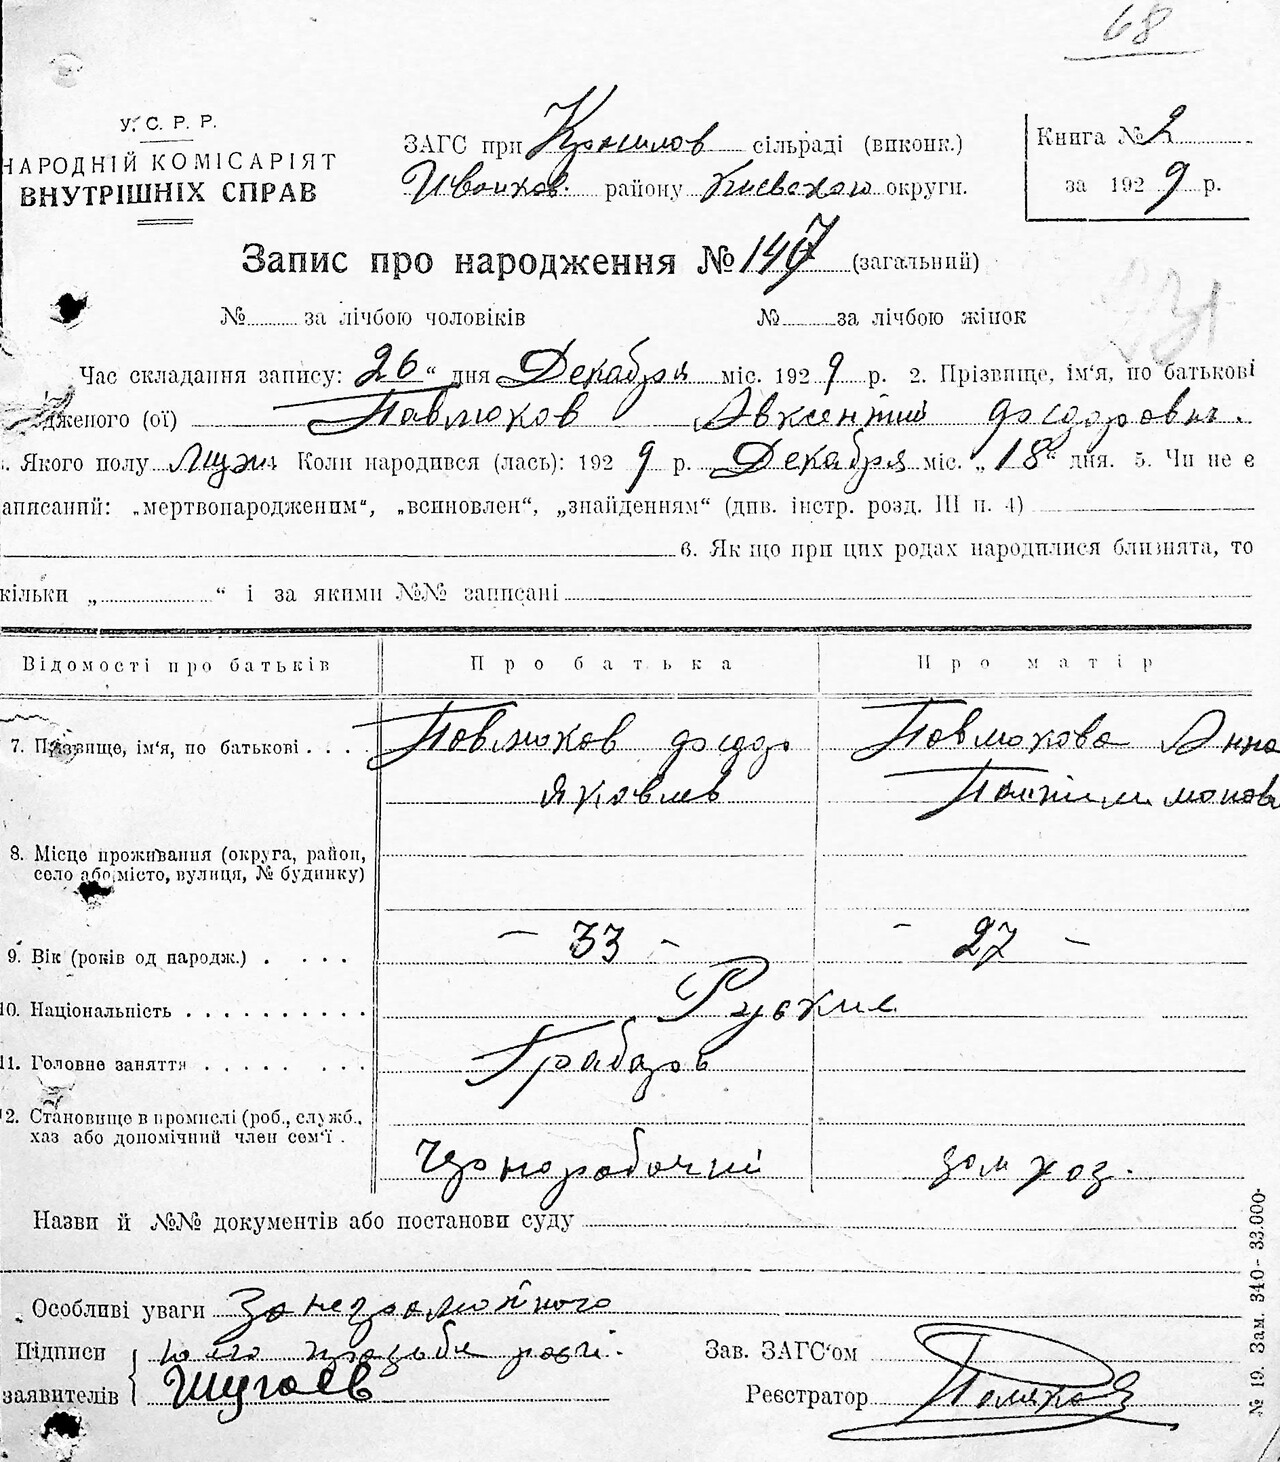 68
У. С. Р. Р.
НАРОДНІЙ КОМІСАРІЯТ
ВНУТРІШНІХ СПРАВ
ЗАГС при Крнилов сільраді (виконк.)
Иванков. району Киевскою округи.
Книга № 2
за 1929 р.
Запис про народження № 147 (загальний)
№ за лічбою чоловіків № за лічбою жінок
Час складання запису: 26 " дня Декабря міс. 1929 р. 2. Прізвище, ім'я, по батькові
дженого (ої) Павлюков Авксентий Федорович.
. Якого полу Муж. Коли народився (лась): 1929 р. Декабря міс. „18" дня. 5. Чи не є
аписаний: „мертвонародженим", „всиновлен", „знайденням" (див. інстр. розд. III п. 4)
6. Як що при цих родах народилися близнята, то
кільки „ " і за якими №№ записані
Відомості про батьків Про батька Про матір
7. Прізвище, ім'я, по батькові . . . . Павлюков Федор Павлюкова Анна
Яковлев
8. Місце проживання (округа, район,
село або місто, вулиця, № будинку)
9. Вік (років од народж.) . . . . - 33 - - 27 -
10. Національність . . . . . . . . . . Руские
11. Головне заняття . . . . . . . . Грабарь
12. Становище в промислі (роб., служб.,
хаз або допомічний член сем'ї .
Чернорабочий дом хоз.
Назви й №№ документів або постанови суду
Особливі уваги За неграмотного
Підписи по его прозьбе росп.
заявителів Шугаев
Зав. ЗАГС'ом
Реєстратор Поляков
№ 19. Зам. 340 - 33.000-